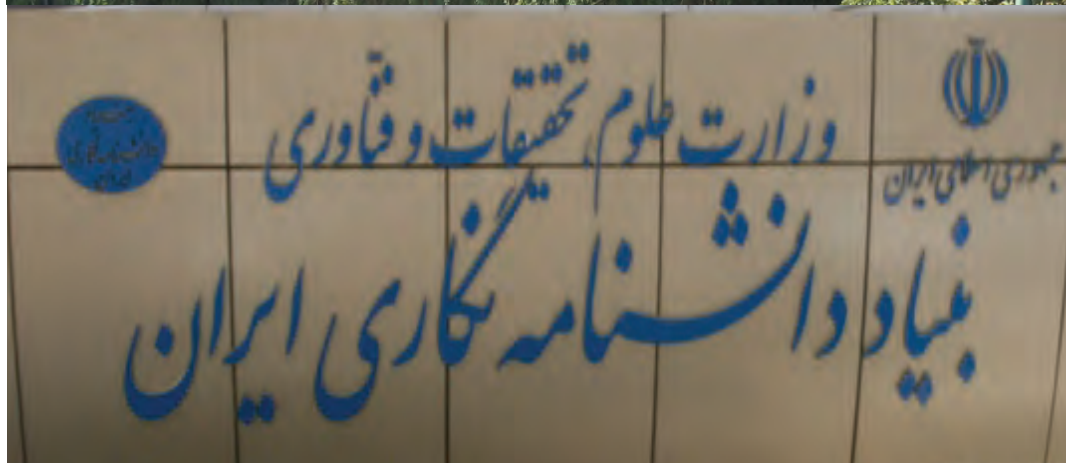 جمهوری اسلامی ایران
وزارت علوم، تحقیقات و فنّاوری
بنیاد دانشنامه نگاری ایران